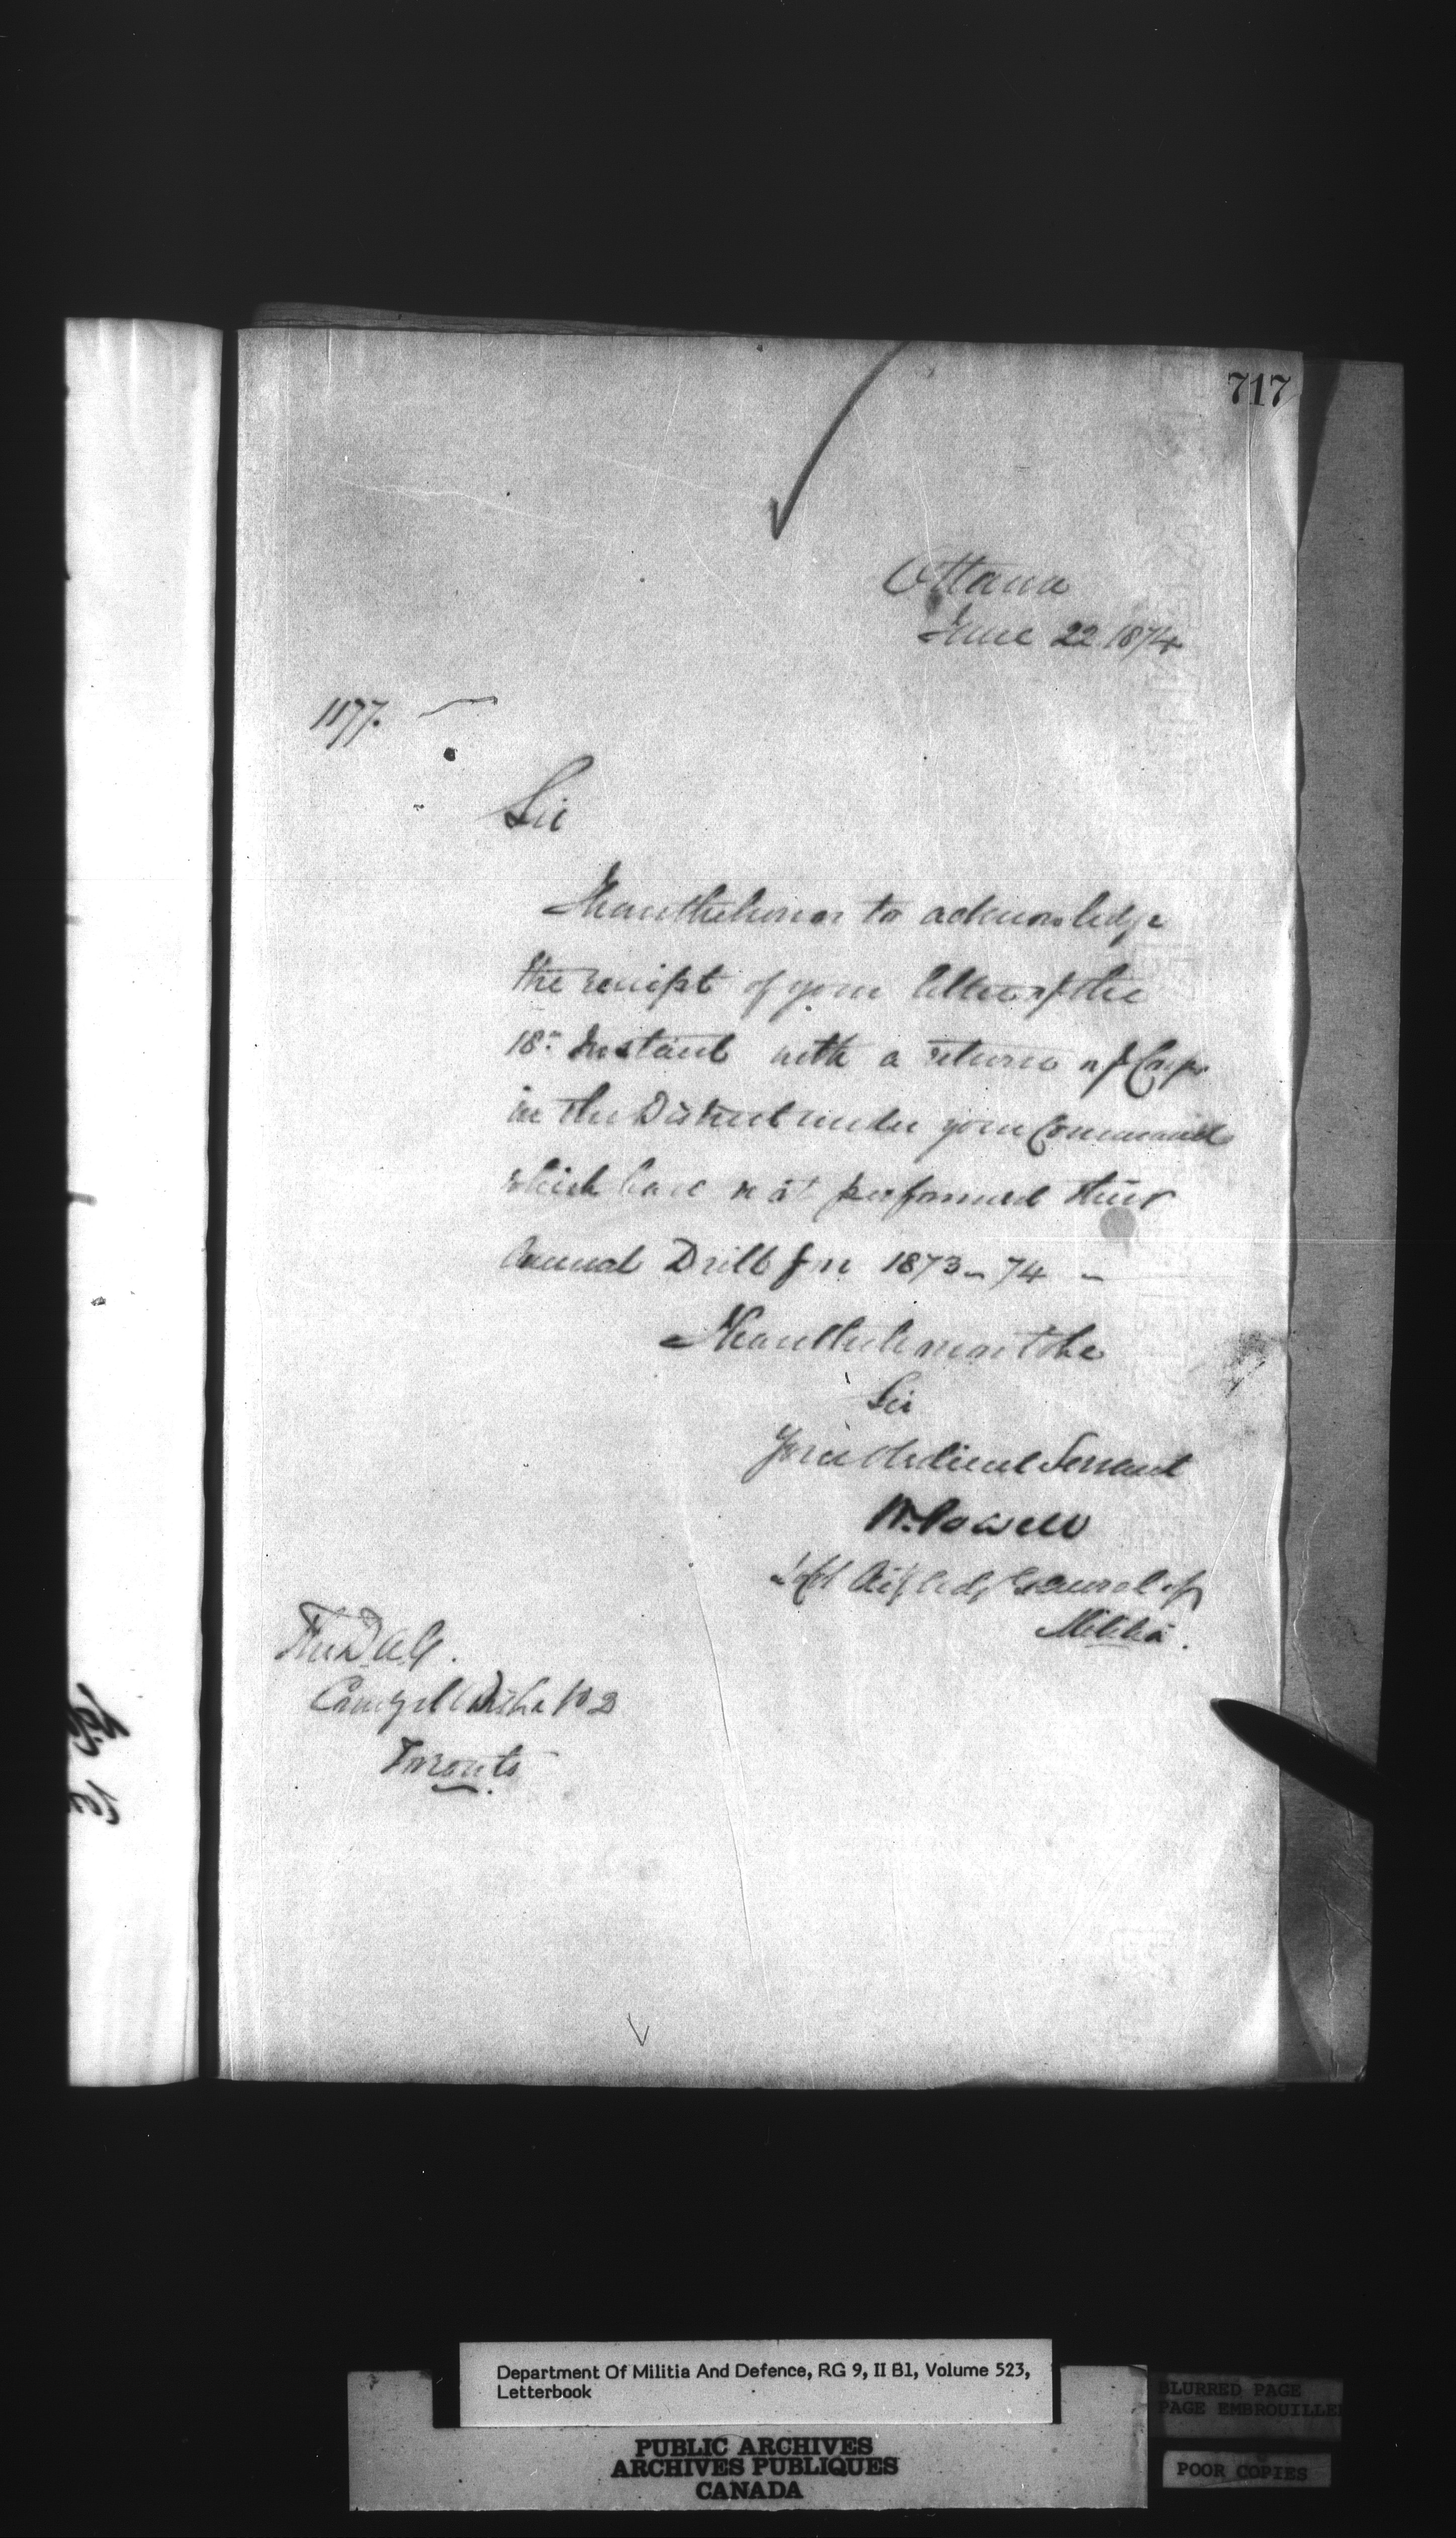 717
Ottawa
June 22 1874
1177.
Sir
I have the honor to acknowledge
the receipt of your letter of the
18th Instant with a return of Corps
in the District under your Command
which have not performed their
Annual Drill for 1873-74 -
I have the honor to be
Sir
Your obedient Servant
W. Powell
General of
Militia.
The D.A.G.
Comg Mil Distr No 2
Toronto
Department Of Militia And Defence, RG 9, II B1, Volume 523,
Letterbook
PUBLIC ARCHIVES
ARCHIVES PUBLIQUES
CANADA
BLURRED PAGE
PAGE EMBROUILLE
POOR COPIES